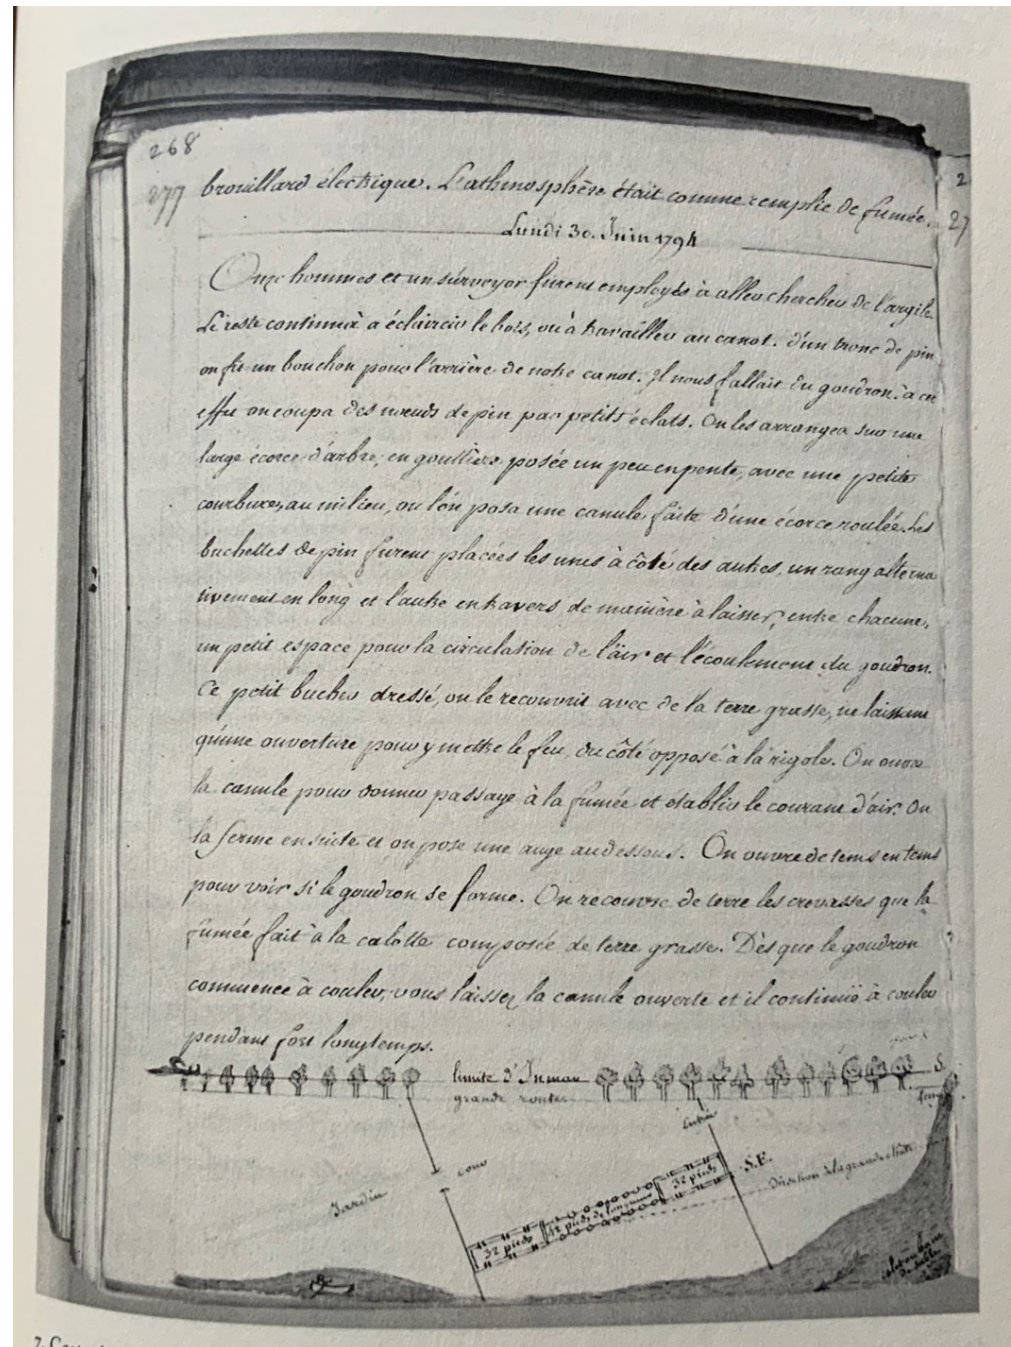 268
277 brouillard électrique. L'athmosphère était comme remplie de fumée.
27
Lundi 30. Juin 1794
Onze hommes et un surveyor furent employés à aller chercher de l'argile.
Le reste continua à éclaircir le bois, ou à travailler au canot. d'un tronc de pin
on fit un bouchon pour l'arrière de notre canot. Il nous fallait du goudron. à cet
effet on coupa des nœuds de pin par petits éclats. On les arrangea sur une
large écorce d'arbre, en gouttière posée un peu en pente, avec une petite
courbure, au milieu, ou l'on posa une canule faite d'une écorce roulée. Les
buchettes de pin furent placées les unes à côté des autres, un rang alterna
tivement en long et l'autre en travers de manière à laisser, entre chacune,
un petit espace pour la circulation de l'air et l'écoulement du goudron.
Ce petit bucher dressé, on le recouvrit avec de la terre grasse, ne laissant
qu'une ouverture pour y mettre le feu, du côté opposé à la rigole. On ouvre
la canule pour donner passage à la fumée et établir le courant d'air. On
la ferme ensuite et on pose une auge au dessous. On ouvre de tems en tems
pour voir si le goudron se forme. On recouvre de terre les crevasses que la
fumée fait à la calotte composée de terre grasse. Dès que le goudron
commence à couler, vous laissez la canule ouverte et il continuë à couler
pendant fort longtemps.
limite d'Inman
grande route
S.
Jardin
cour
32 pieds
42 pieds de longueur
32 pieds
S.E.
direction de la grande chute